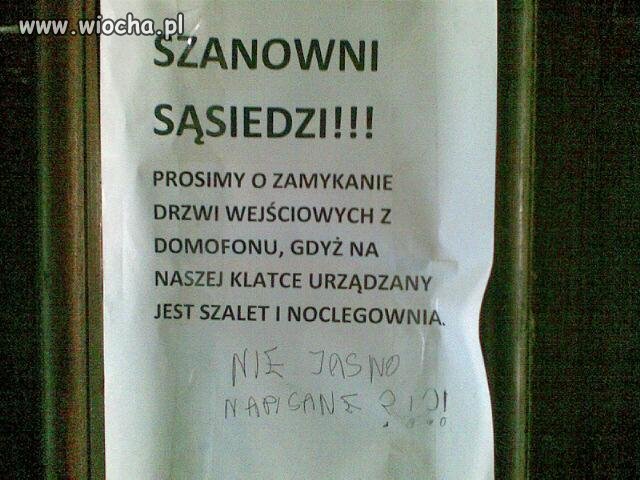 www.wiocha.pl
SZANOWNI
SĄSIEDZI!!!
PROSIMY O ZAMYKANIE
DRZWI WEJŚCIOWYCH Z
DOMOFONU, GDYŻ NA
NASZEJ KLATCE URZĄDZANY
JEST SZALET I NOCLEGOWNIA.
NIE JASNO
NAPISANE ?!?!